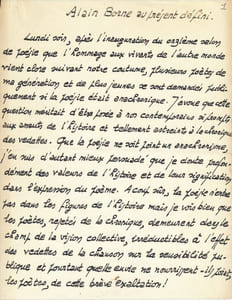 1
Alain Borne au présent défini.
Lundi soir, après l'inauguration du onzième salon
de poésie que l'hommage aux vivants de l'autre monde
vient clore suivant notre coutume, plusieurs poètes de
ma génération et de plus jeunes se sont demandé publi-
quement si la poésie était anachronique. J'avoue que cette
question méritait d'être posée à nos contemporains
aux sœurs de l'histoire et tellement astreints à la chronique
des vedettes. Que la poésie ne soit point un anachronisme,
j'en suis d'autant mieux persuadé que je doute profon-
dément des valeurs de l'histoire et de leur signification
dans l'expression du poème. A coup sûr, la poésie n'entre
pas dans les figures de l'histoire mais je vois bien que
les poètes, rejetés de la chronique, demeurent dans le
champ de la vision collective, irréductibles à l'effet
des vedettes de la chanson sur la sensibilité pu-
blique et pourtant quelle aude ne nourrissent-ils point,
les poètes, de cette brève exaltation !